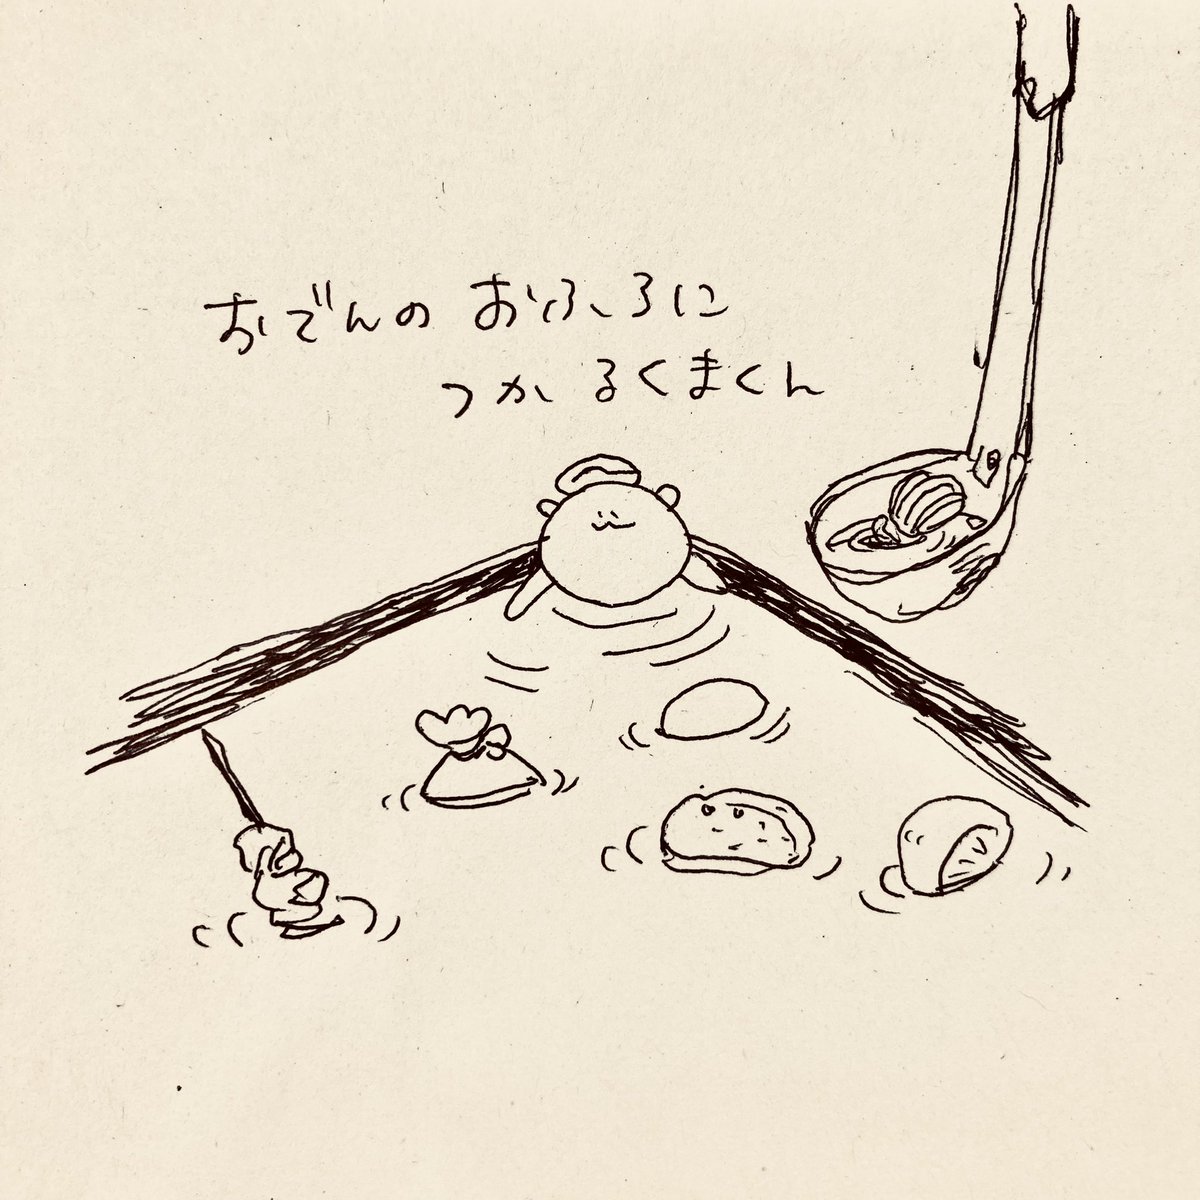 おでんの おふろに
つかるくまくん